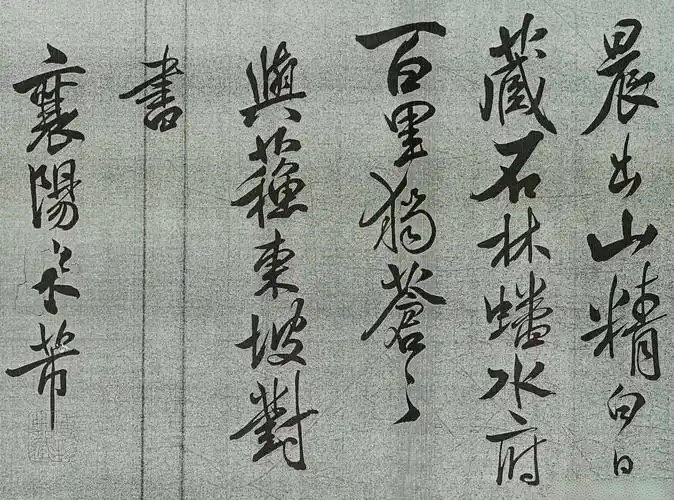 晨出山精白日
藏石林蟠水府
百里獨蒼〻
與蘇東坡對
書
襄陽米芾